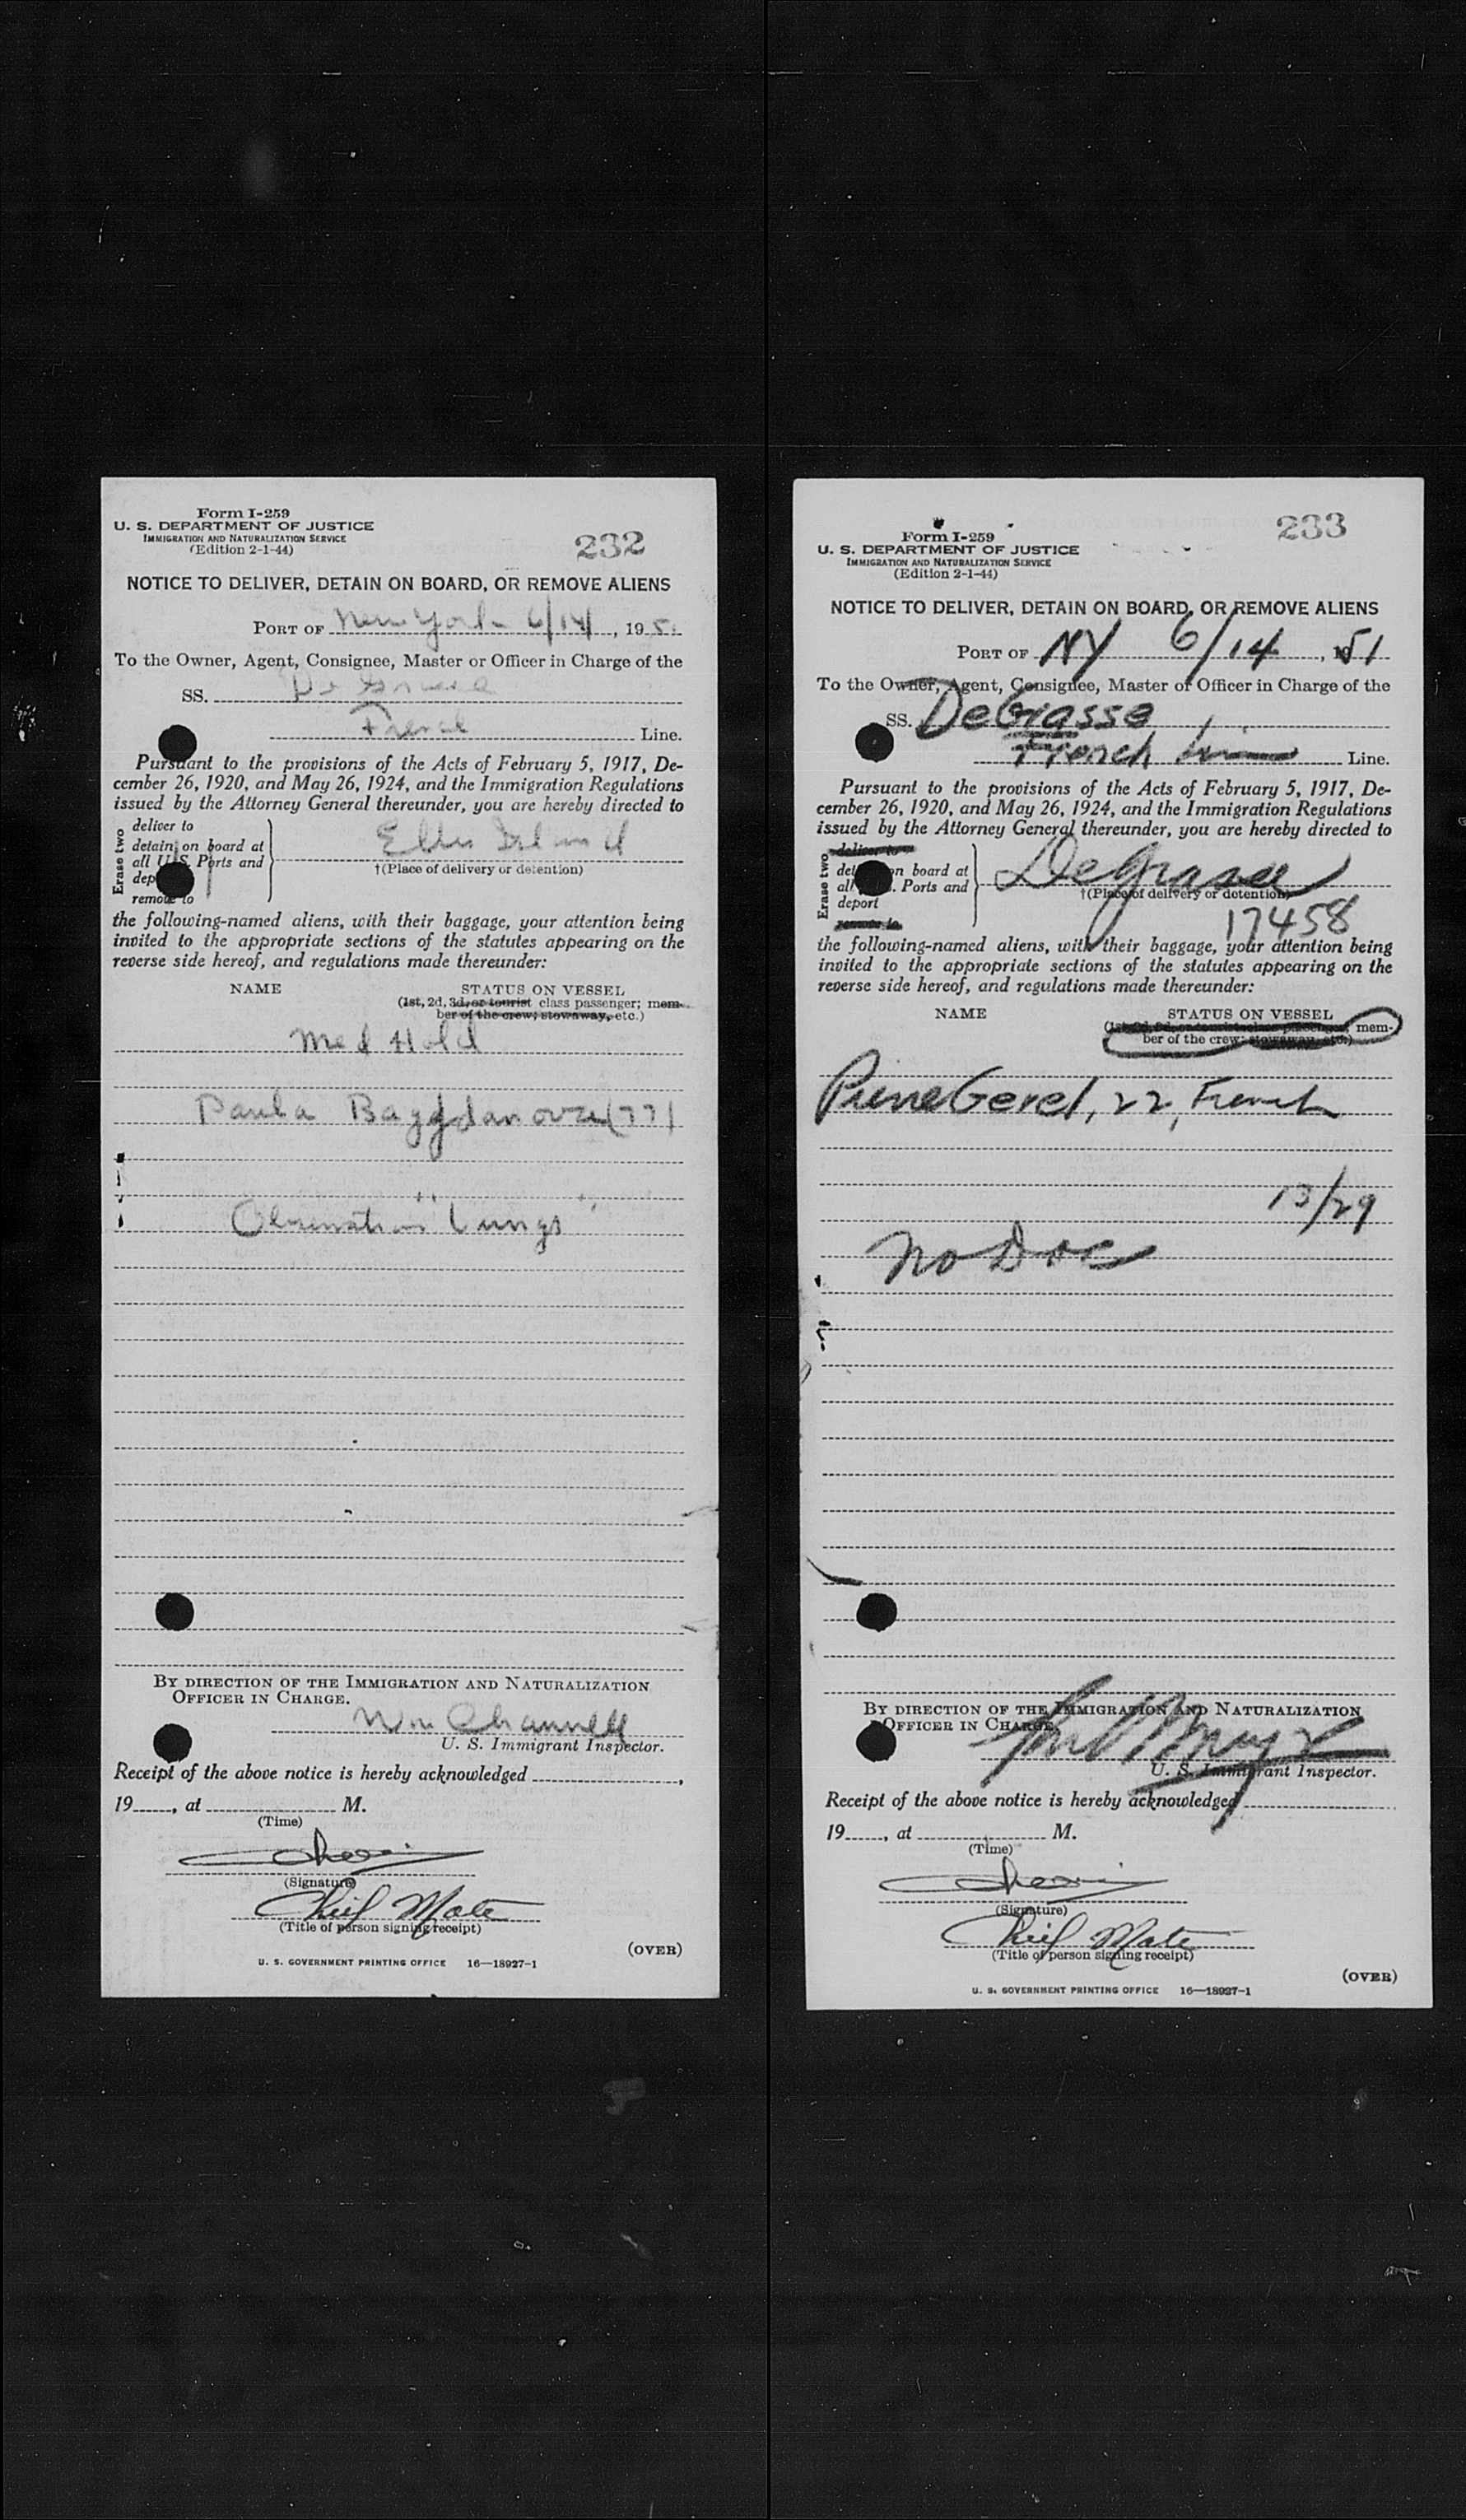 Form I-259
U. S. DEPARTMENT OF JUSTICE
IMMIGRATION AND NATURALIZATION SERVICE
(Edition 2-1-44)
232
NOTICE TO DELIVER, DETAIN ON BOARD, OR REMOVE ALIENS
PORT OF New York 6/14/, 195
To the Owner, Agent, Consignee, Master or Officer in Charge of the
SS. De Grasse
French Line.
Pursuant to the provisions of the Acts of February 5, 1917, De-
cember 26, 1920, and May 26, 1924, and the Immigration Regulations
issued by the Attorney General thereunder, you are hereby directed to
Erase two
deliver to
detain on board at
all U. S. Ports and
dep
remove to
Ellis Island
†(Place of delivery or detention)
the following-named aliens, with their baggage, your attention being
invited to the appropriate sections of the statutes appearing on the
reverse side hereof, and regulations made thereunder:
NAME STATUS ON VESSEL
(1st, 2d, 3d, or tourist class passenger; mem-
ber of the crew; stowaway, etc.)
Med Hold
Paula (77)
Observation Lungs
BY DIRECTION OF THE IMMIGRATION AND NATURALIZATION
OFFICER IN CHARGE.
Wm Channell
U. S. Immigrant Inspector.
Receipt of the above notice is hereby acknowledged ,
19 , at M.
(Time)
(Signature)
Chief Mate
(Title of person signing receipt)
(OVER)
U. S. GOVERNMENT PRINTING OFFICE 16—18927-1
Form I-259
U. S. DEPARTMENT OF JUSTICE
IMMIGRATION AND NATURALIZATION SERVICE
(Edition 2-1-44)
233
NOTICE TO DELIVER, DETAIN ON BOARD, OR REMOVE ALIENS
PORT OF NY 6/14, 1951
To the Owner, Agent, Consignee, Master or Officer in Charge of the
SS. DeGrasse
French Line Line.
Pursuant to the provisions of the Acts of February 5, 1917, De-
cember 26, 1920, and May 26, 1924, and the Immigration Regulations
issued by the Attorney General thereunder, you are hereby directed to
Erase two
deliver to
det on board at
all . Ports and
deport
remove to
DeGrasse
†(Place of delivery or detention)
17458
the following-named aliens, with their baggage, your attention being
invited to the appropriate sections of the statutes appearing on the
reverse side hereof, and regulations made thereunder:
NAME STATUS ON VESSEL
(1st, 2d, 3d, or tourist class passenger; mem-
ber of the crew; stowaway, etc.)
Pierre Gerel, 22, French
13/29
No Doc
BY DIRECTION OF THE IMMIGRATION AND NATURALIZATION
OFFICER IN CHARGE.
U. S. Immigrant Inspector.
Receipt of the above notice is hereby acknowledged
19 , at M.
(Time)
(Signature)
Chief Mate
(Title of person signing receipt)
(OVER)
U. S. GOVERNMENT PRINTING OFFICE 16—18927-1